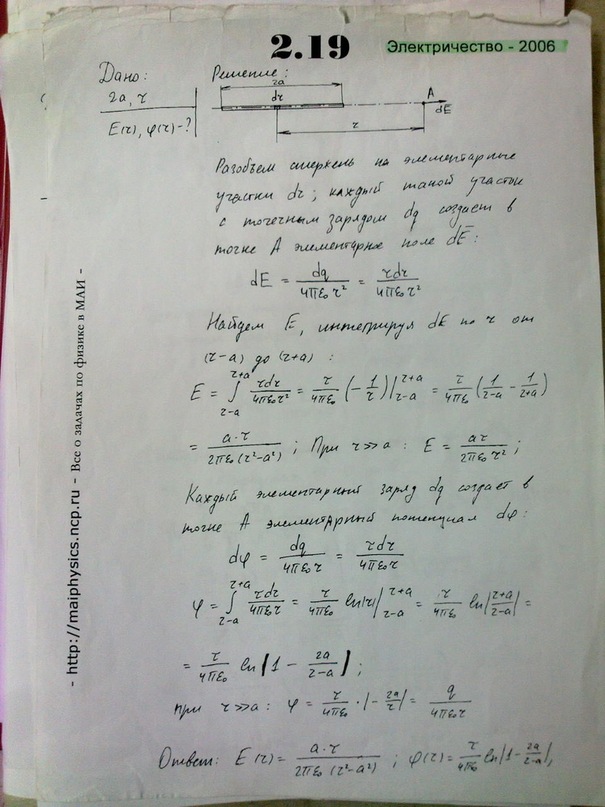 2.19
Электричество - 2006
Дано:
2a, τ
E(r), φ(r) - ?
Решение:
2a
dr
A
dE
r
Разобьем стержень на элементарные
участки dr; каждый такой участок
с точечным зарядом dq создает в
точке A элементарное поле dE̅:
dE = dq/4πε₀r² = τdr/4πε₀r²
Найдем E, интегрируя dE по r от
(r-a) до (r+a):
E = ∫_{r-a}^{r+a} τdr/4πε₀r² = τ/4πε₀ (-1/r)|_{r-a}^{r+a} = τ/4πε₀ (1/(r-a) - 1/(r+a))
= a·τ/2πε₀(r²-a²); При r≫a: E = aτ/2πε₀r²;
Каждый элементарный заряд dq создает в
точке A элементарный потенциал dφ:
dφ = dq/4πε₀r = τdr/4πε₀r
φ = ∫_{r-a}^{r+a} τdr/4πε₀r = τ/4πε₀ ln|r||_{r-a}^{r+a} = τ/4πε₀ ln|(r+a)/(r-a)| =
= τ/4πε₀ ln|1 - 2a/(r-a)|;
при r≫a: φ = τ/4πε₀ · |-2a/r| = q/4πε₀r
Ответ: E(r) = a·τ/2πε₀(r²-a²); φ(r) = τ/4πε₀ ln|1 - 2a/(r-a)|,
- http://maiphysics.ncp.ru - Все о задачах по физике в МАИ -